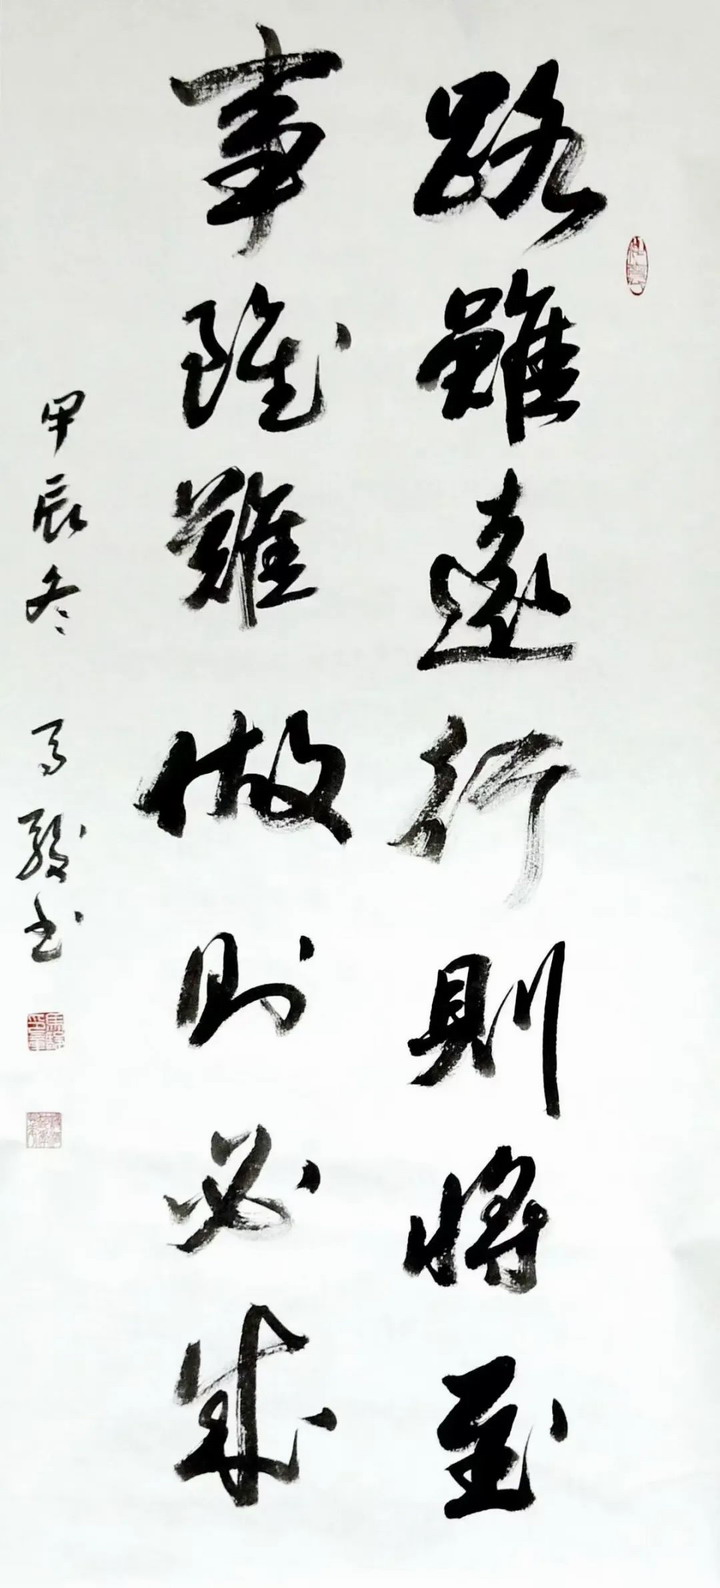 路雖遠行則將至
事雖難做則必成
甲辰冬 马骏书